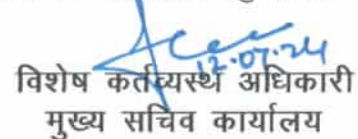 12.07.24
विशेष कर्तव्यस्थ अधिकारी
मुख्य सचिव कार्यालय